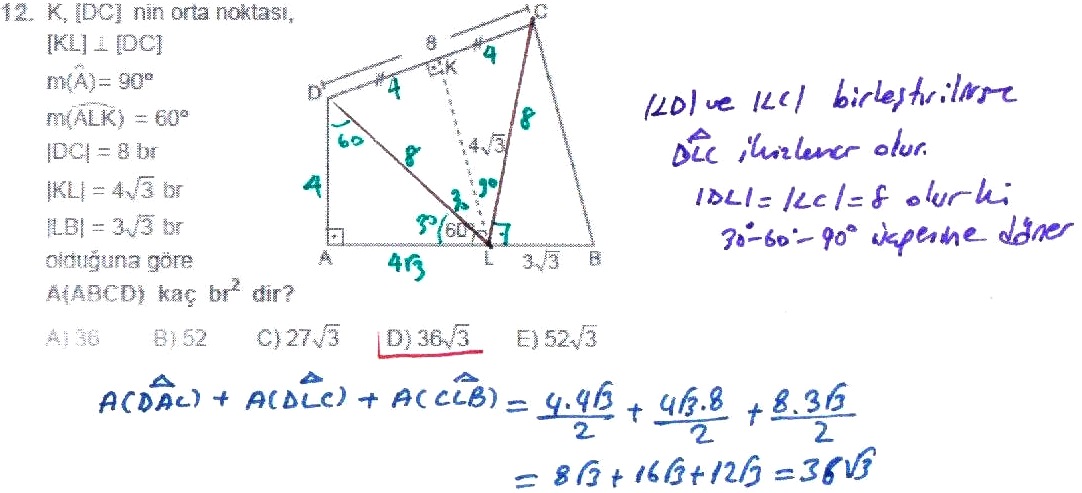 12. K, [DC] nin orta noktası,
[KL] ⊥ [DC]
m(Â) = 90°
m(ALK) = 60°
|DC| = 8 br
|KL| = 4√3 br
|LB| = 3√3 br
olduğuna göre
A(ABCD) kaç br² dir?
A) 36 B) 52 C) 27√3 D) 36√3 E) 52√3
C
8
4
K
D
4
60
8
4√3
8
4
30
30
30
60
A
4√3
L
3√3
B
|LD| ve |LC| birleştirilirse
DLC ikizkenar olur.
|DL| = |LC| = 8 olur ki
30°-60°-90° üçgenine döner
A(DAL) + A(DLC) + A(CLB) = 4.4√3/2 + 4√3.8/2 + 8.3√3/2
= 8√3 + 16√3 + 12√3 = 36√3